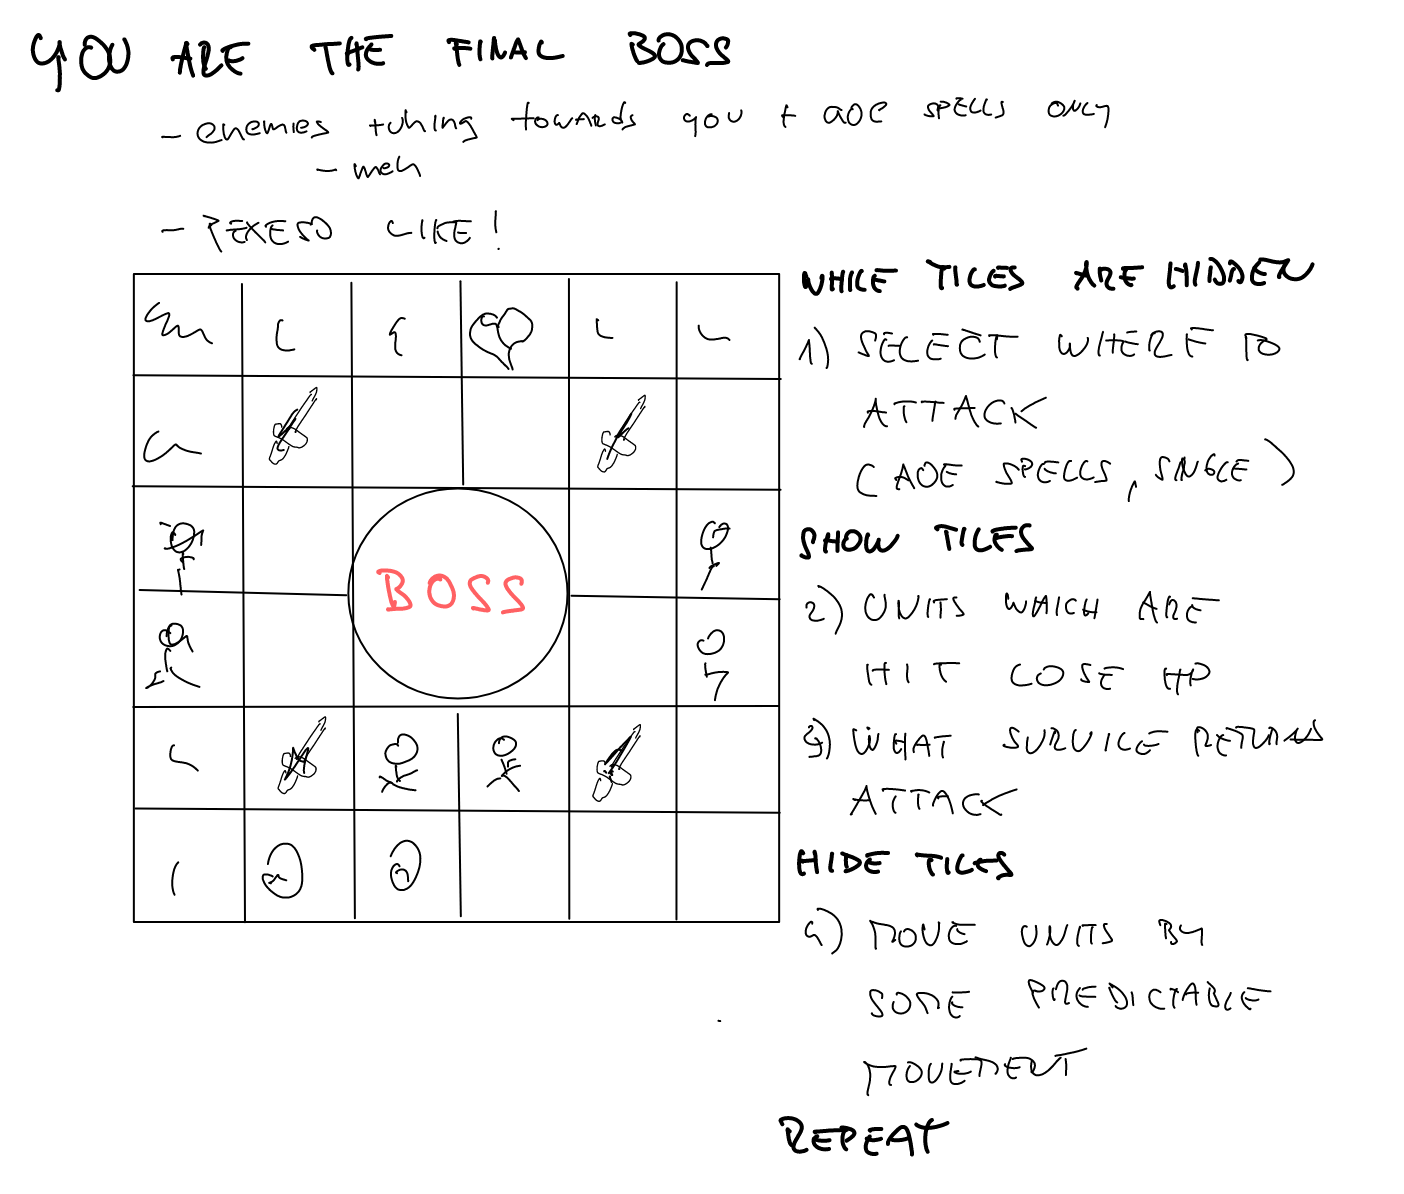 YOU ARE THE FINAL BOSS
- enemies towards you + aoe SPELLS ONLY
- meh
- PEXESO LIKE!
WHILE TILES ARE HIDDEN
1) SELECT WHERE TO
ATTACK
(AOE SPELLS, SINGLE)
SHOW TILES
2) UNITS WHICH ARE
HIT LOSE HP
3) WHAT SURVICE RETURNS
ATTACK
HIDE TILES
4) MOVE UNITS BY
SOME PREDICTABLE
MOVEMENT
REPEAT
BOSS